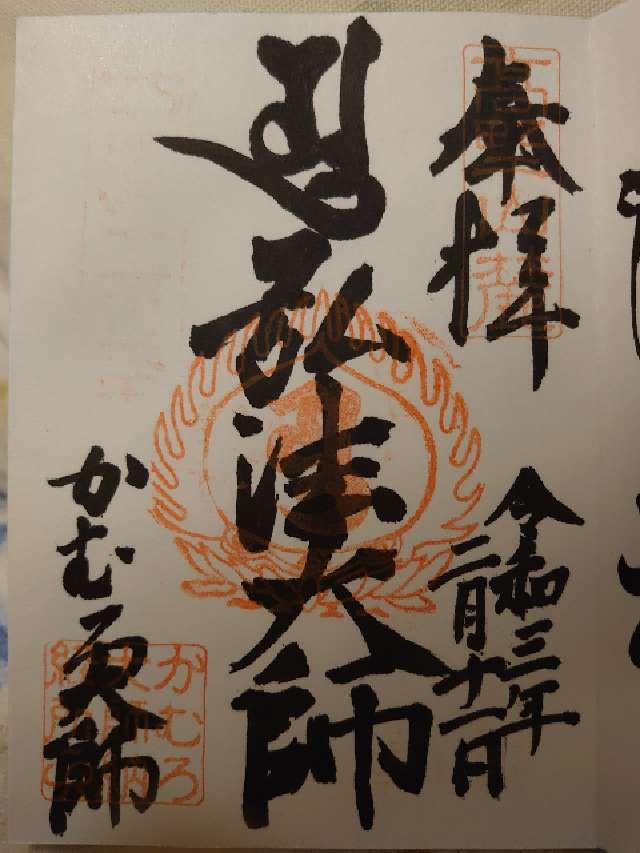 奉拝
令和三年
二月十二日
弘法大師
かむろ大師
かむろ
大師